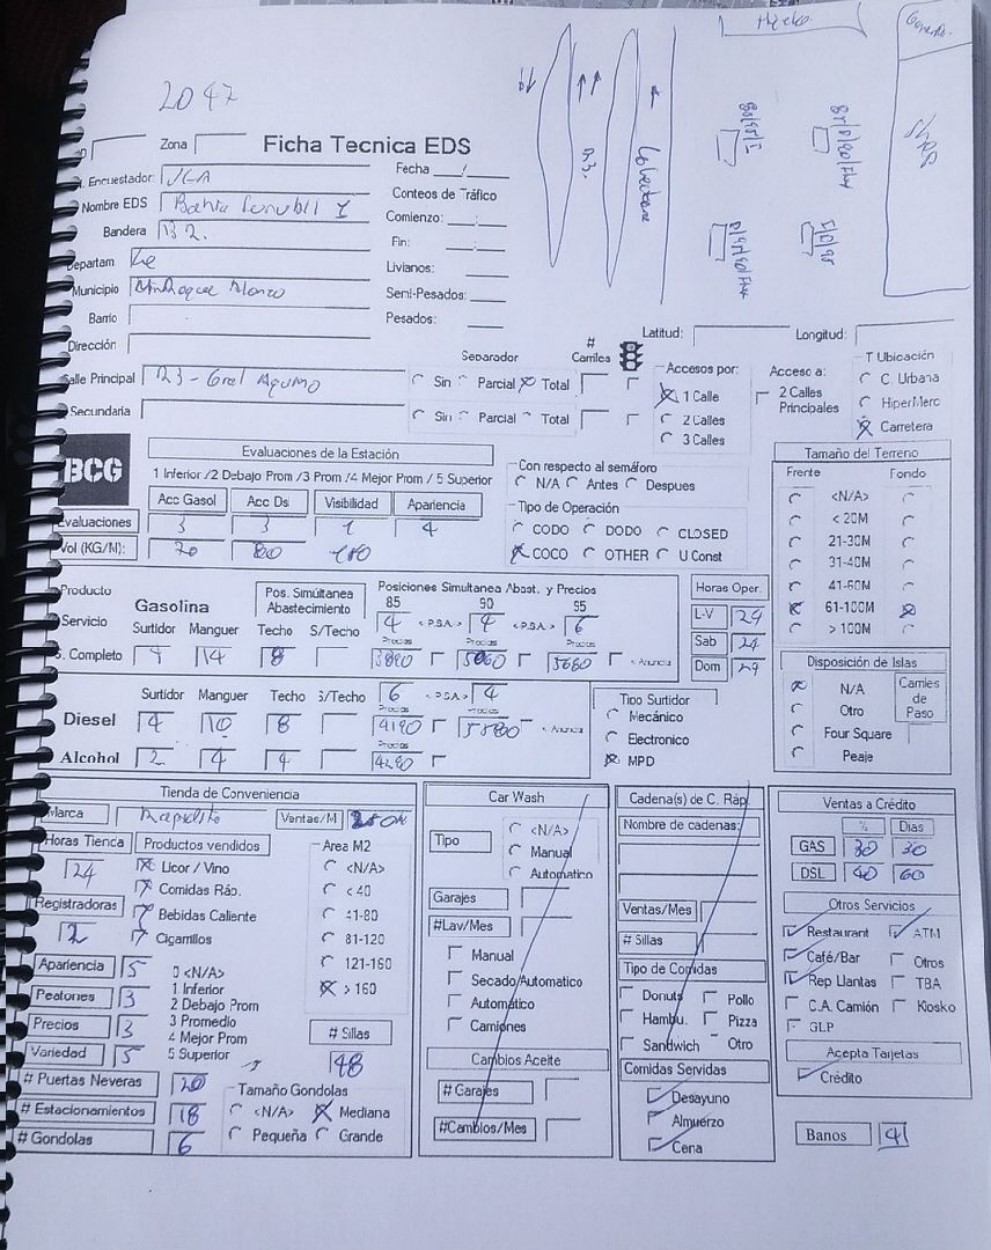 2047
Zona
Ficha Tecnica EDS
Encuestador: JGA
Fecha
Nombre EDS Bahia I
Conteos de Tráfico
Comienzo:
Bandera B2.
Fin:
Departam
Livianos:
Municipio Alonzo
Semi-Pesados:
Barrio
Pesados:
Dirección
Latitud:
Longitud:
Shop
R3.
Colectora
Calle Principal R3 - Gral
Separador
# Carriles
Sin Parcial Total
Accesos por:
1 Calle
2 Calles
3 Calles
Acceso a:
2 Calles Principales
T Ubicación
C. Urbana
HiperMerc
Carretera
Secundaria
Sin Parcial Total
BCG
Evaluaciones de la Estación
1 Inferior /2 Debajo Prom /3 Prom /4 Mejor Prom / 5 Superior
Acc Gasol Acc Ds Visibilidad Apariencia
Evaluaciones 3 3 1 4
Vol (KG/M): 70 80
Con respecto al semáforo
N/A Antes Despues
Tipo de Operación
CODO DODO CLOSED
COCO OTHER U Const
Tamaño del Terreno
Frente Fondo
<N/A>
< 20M
21-30M
31-40M
41-60M
61-100M
> 100M
Producto
Servicio
Gasolina
Pos. Simúltanea Abastecimiento
Posiciones Simultanea Abast. y Precios
85 90 95
4 <P.S.A> 4 <P.S.A> 6
Surtidor Manguer Techo S/Techo
Precios Precios Precios
S. Completo 14 8 5060 5680 < Anuncia
Horas Oper.
L-V 24
Sab 24
Dom 24
Diesel
Surtidor Manguer Techo S/Techo
6 <P.S.A> 4
Precios Precios
4 10 8 4190 5580 < Anuncia
Alcohol 2 4 4
Precios
4280
Tipo Surtidor
Mecánico
Electronico
MPD
Disposición de Islas
N/A
Otro
Four Square
Peaje
Carriles de Paso
Tienda de Conveniencia
Marca Rapidito
Ventas/M
Horas Tienda
24
Productos vendidos
Licor / Vino
Comidas Ráp.
Bebidas Caliente
Cigarrillos
Area M2
<N/A>
< 40
41-80
81-120
121-160
> 160
Registradoras
2
Apariencia 5
Peatones 3
Precios 3
Variedad 5
0 <N/A>
1 Inferior
2 Debajo Prom
3 Promedio
4 Mejor Prom
5 Superior
# Sillas
48
# Puertas Neveras 20
# Estacionamientos 18
# Gondolas 6
Tamaño Gondolas
<N/A> Mediana
Pequeña Grande
Car Wash
Tipo
<N/A>
Manual
Automatico
Garajes
#Lav/Mes
Manual
Secado/Automatico
Automático
Camiones
Cambios Aceite
# Garajes
#Cambios/Mes
Cadena(s) de C. Ráp.
Nombre de cadenas:
Ventas/Mes
# Sillas
Tipo de Comidas
Donuts Pollo
Hambu. Pizza
Sandwich Otro
Comidas Servidas
Desayuno
Almuerzo
Cena
Ventas a Crédito
% Dias
GAS 30 30
DSL 40 60
Otros Servicios
Restaurant ATM
Café/Bar Otros
Rep Llantas TBA
C.A. Camión Kiosko
GLP
Acepta Tarjetas
Crédito
Banos 4